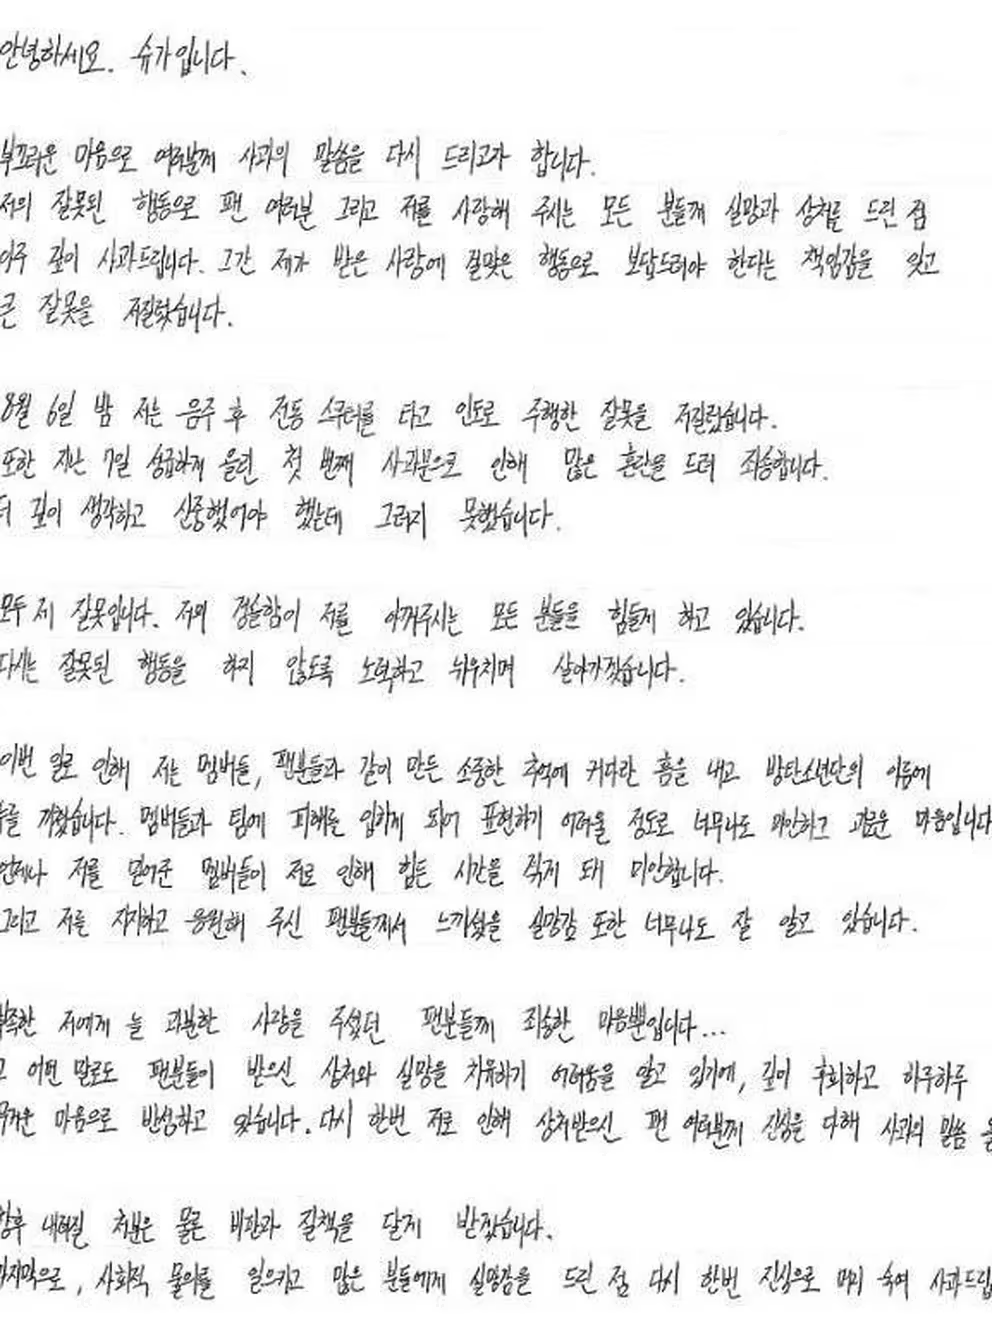 안녕하세요. 슈가입니다.
부끄러운 마음으로 여러분께 사과의 말씀을 다시 드리고자 합니다.
저의 잘못된 행동으로 팬 여러분 그리고 저를 사랑해 주시는 모든 분들께 실망과 상처를 드린 점
아주 깊이 사과드립니다. 그간 제가 받은 사랑에 걸맞은 행동으로 보답드려야 한다는 책임감을 잊고
큰 잘못을 저질렀습니다.
8월 6일 밤 저는 음주 후 전동 스쿠터를 타고 인도로 주행한 잘못을 저질렀습니다.
또한 지난 7일 성급하게 올린 첫 번째 사과문으로 인해 많은 혼란을 드려 죄송합니다.
더 깊이 생각하고 신중했어야 했는데 그러지 못했습니다.
모두 제 잘못입니다. 저의 경솔함이 저를 아껴주시는 모든 분들을 힘들게 하고 있습니다.
다시는 잘못된 행동을 하지 않도록 노력하고 뉘우치며 살아가겠습니다.
이번 일로 인해 저는 멤버들, 팬분들과 같이 만든 소중한 추억에 커다란 흠을 내고 방탄소년단의 이름에
누를 끼쳤습니다. 멤버들과 팀에 피해를 입히게 되어 표현하기 어려울 정도로 너무나도 미안하고 괴로운 마음입니다
언제나 저를 믿어준 멤버들이 저로 인해 힘든 시간을 겪게 돼 미안합니다.
그리고 저를 지지하고 응원해 주신 팬분들께서 느끼셨을 실망감 또한 너무나도 잘 알고 있습니다.
부족한 저에게 늘 과분한 사랑을 주셨던 팬분들께 죄송한 마음뿐입니다...
그 어떤 말로도 팬분들이 받으신 상처와 실망을 치유하기 어려움을 알고 있기에, 깊이 후회하고 하루하루
무거운 마음으로 반성하고 있습니다. 다시 한번 저로 인해 상처받으신 팬 여러분께 진심을 다해 사과의 말씀
향후 내려질 처분은 물론 비판과 질책을 달게 받겠습니다.
마지막으로, 사회적 물의를 일으키고 많은 분들에게 실망감을 드린 점 다시 한번 진심으로 머리 숙여 사과드립